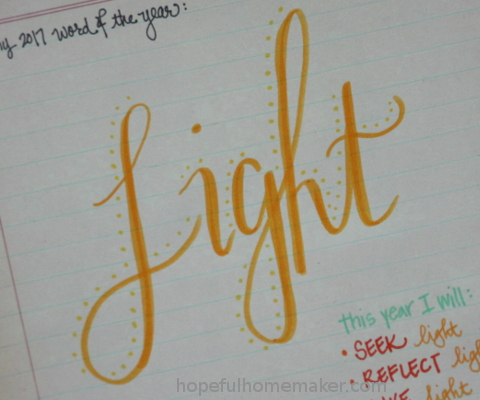 my 2017 word of the year:
Light
this year I will:
• SEEK light
• REFLECT light
light
hopefulhomemaker.com